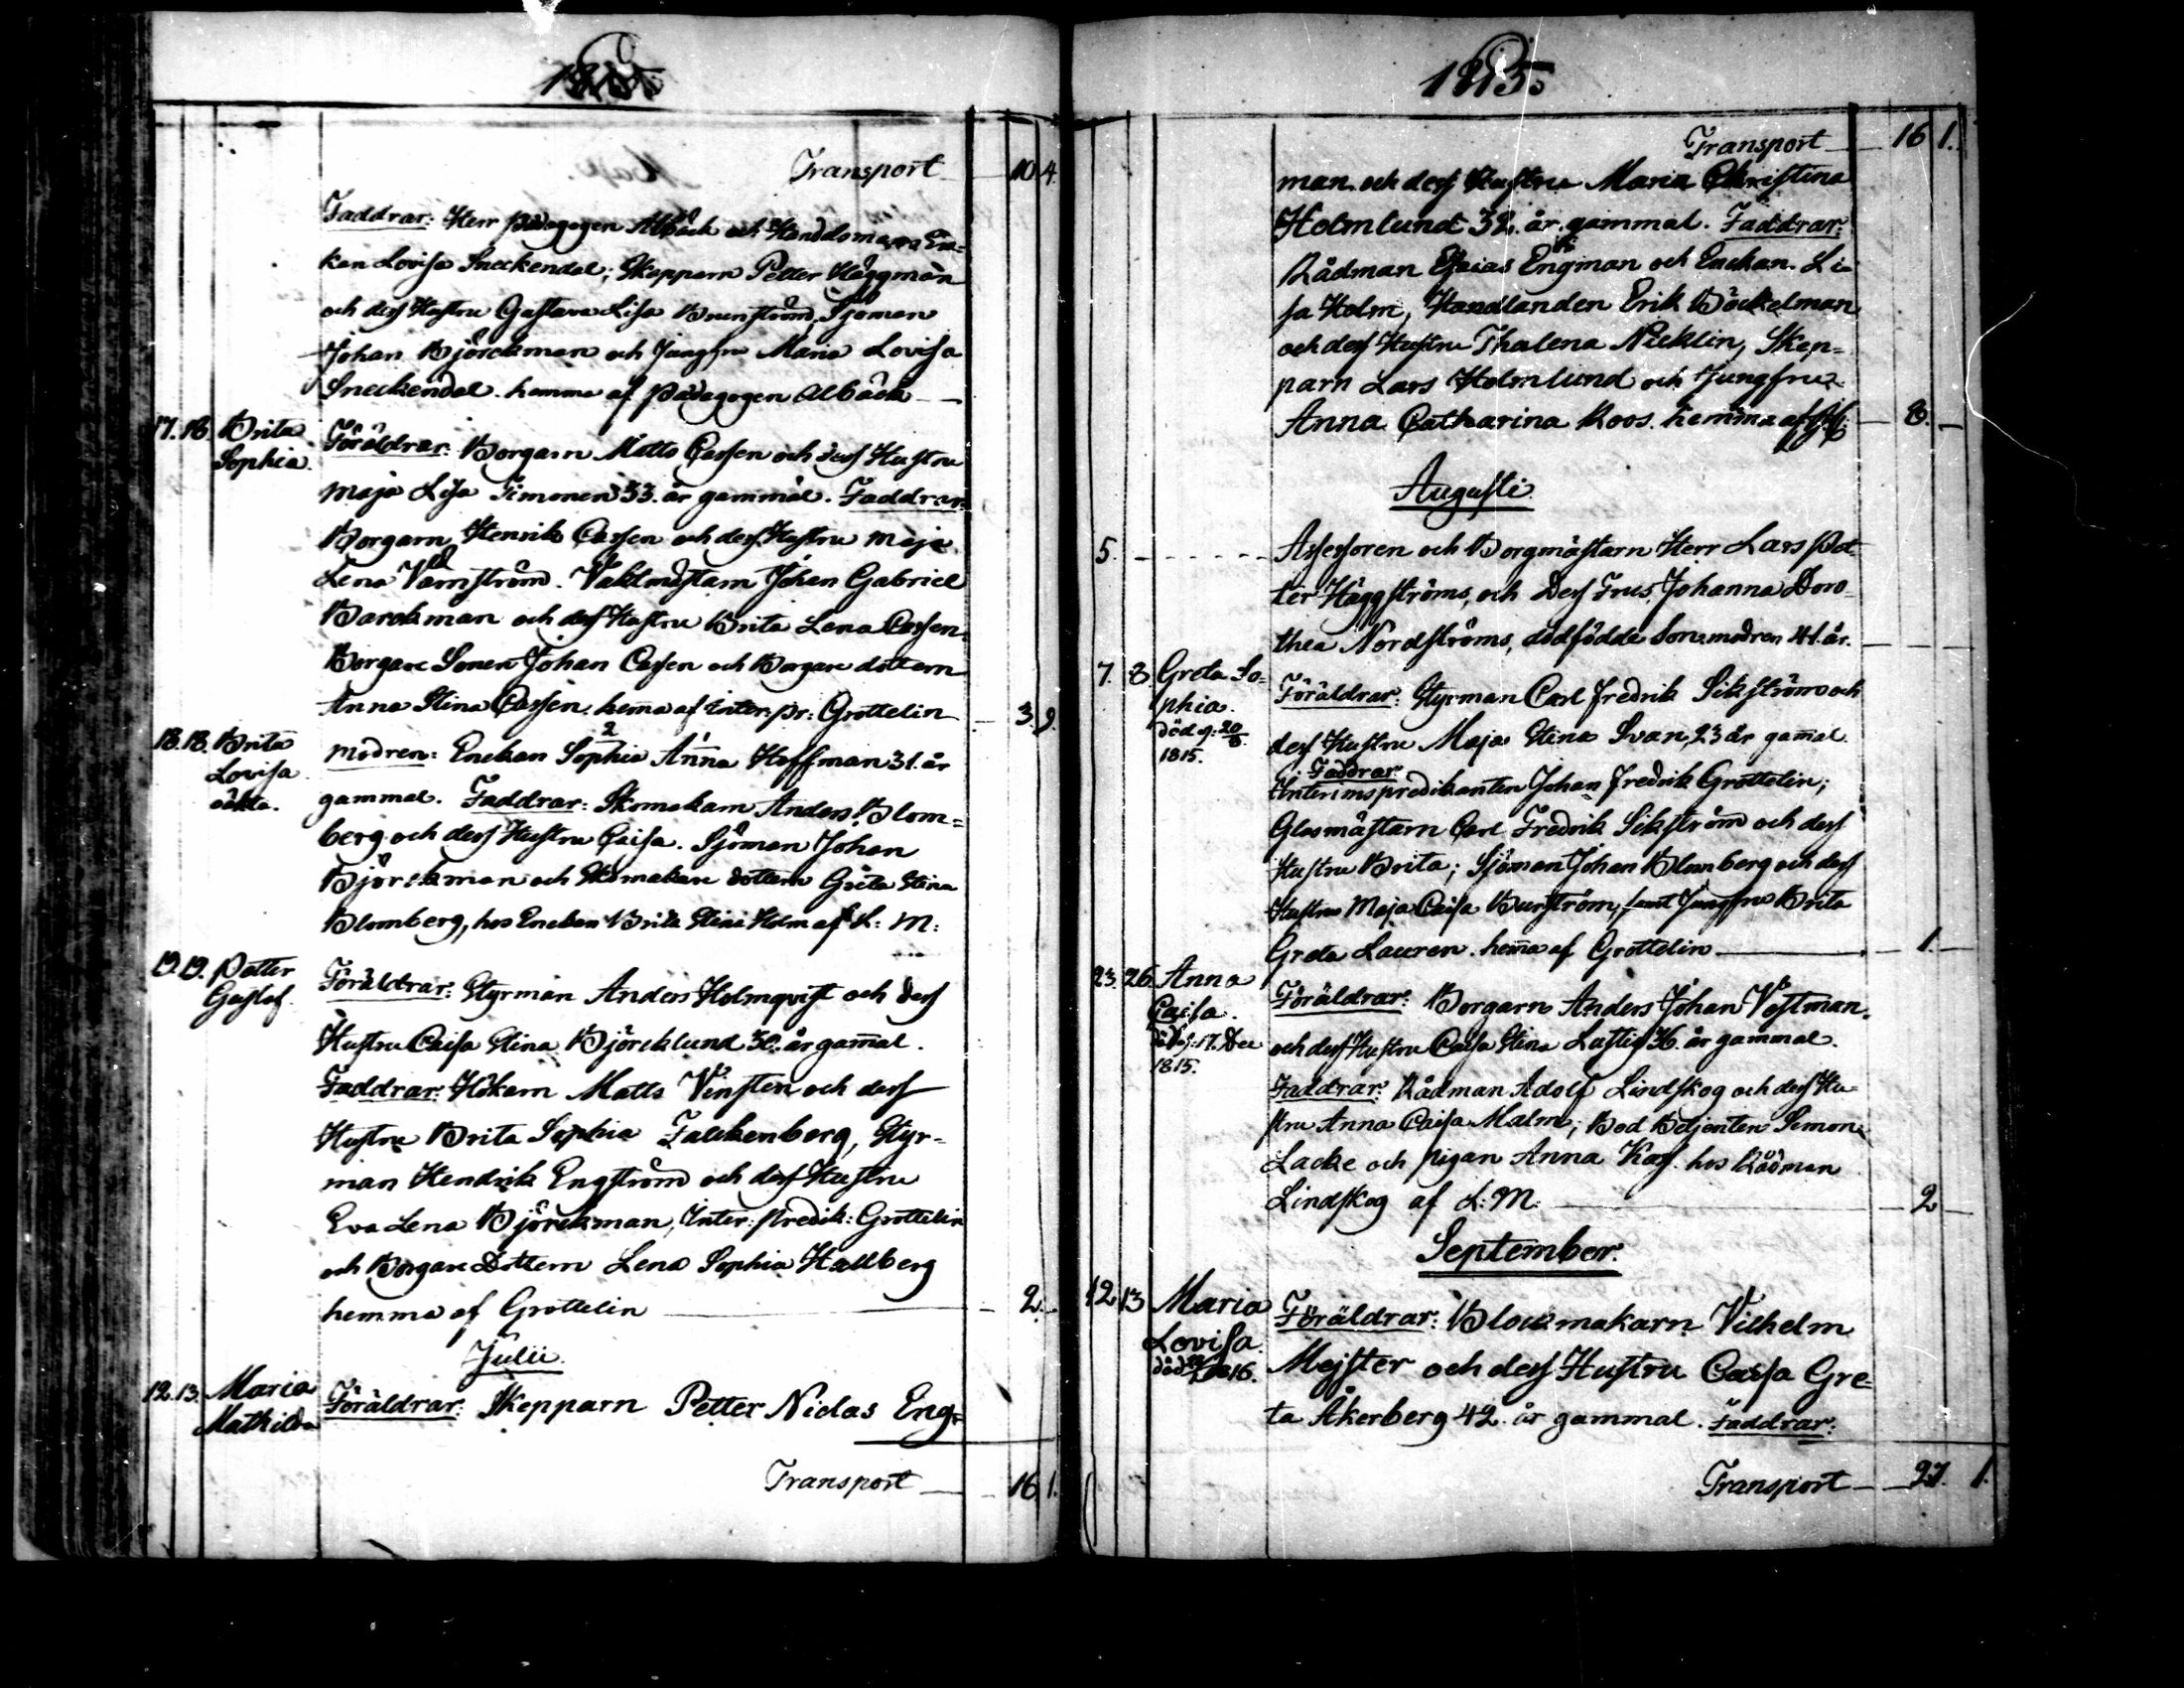 1815.
Transport 10 4.
Faddrar: Herr Pædagogen Albäck och Handelsmans En-
kan Lovisa Sneckendal; Skepparn Petter Häggman
och dess Hustru Gustava Lisa Brunström, Sjöman
Johan Björckman och Jungfru Maria Lovisa
Sneckendal. hemma af Pædagogen Albäck
17. 18. Brita Sophia.
Föräldrar: Borgarn Matts Cassen och dess Hustru
Maja Lisa Timonen 33. år gammal. Faddrar:
Borgarn Henrik Cassen och dess Hustru Maja
Lena Varnström. Vaktmästarn Johan Gabriel
Barckman och dess Hustru Brita Lena Cassen.
Borgare Sonen Johan Cassen och Borgare dottern
Anna Stina Cassen. hema af Inter: pr: Grottelin 3. 9.
18. 18. Brita Lovisa oäkta.
Modren: Enckan Sophia Anna Hoffman 31. år
gammal. Faddrar: Skomakarn Anders Blom=
berg och dess Hustru Caisa. Sjöman Johan
Björckman och Skomakare dottern Greta Stina
Blomberg, hos Enckan Brita Stina Holm af L: M:
19. 19. Petter Gustaf.
Föräldrar: Styrman Anders Holmqvist och dess
Hustru Caisa Stina Björcklund 30. år gamal.
Faddrar: Hökarn Matts Vinsten och dess
Hustru Brita Sophia Falckenberg, Styr-
man Hendrik Engström och dess Hustru
Eva Lena Björckman, Inter: predik: Grottelin
och Borgare Dottern Lena Sophia Hallberg
hemma af Grottelin 2.
Julii.
12. 13. Maria Mathilda
Föräldrar: Skepparn Petter Niclas Eng-
Transport 16 1.
1815.
Transport 16 1.
man och dess Hustru Maria Christina
Holmlund 32. år gammal. Faddrar:
Rådman Esaias Engman och Enckan Li-
sa Holm, Handlanden Erik Böckelman
och dess Hustru Thalena Nicklin, Skep=
parn Lars Holmlund och Jungfru
Anna Catharina Roos. hemma af 8.
Augusti.
5. Assessoren och Borgmästarn Herr Lars Pet
ter Häggströms, och Dess Frus Johanna Doro-
thea Nordströms, dödfödde Son. modren 41. år.
7. 8. Greta So=
phia.
död d: 20/8.
1815.
Föräldrar: Styrman Carl Fredrik Sikström och
dess Hustru Maja Stina Svan, 23 år gamal.
Faddrar:
Interimspredikanten Johan Fredrik Grottelin;
Glasmästarn Carl Fredrik Sikström och dess
Hustru Brita; Sjöman Johan Blomberg och dess
Hustru Maja Caisa Burström, samt Jungfru Brita
Greta Lauren. hema af Grottelin 1.
23. 26. Anna
Caisa.
död d. 17. Dec
1815.
Föräldrar: Borgarn Anders Johan Vestman
och dess Hustru Caisa Stina Lustig 36. år gammal.
Faddrar: Rådman Adolf Lindskog och dess Hu-
stru Anna Caisa Malm; Bod Betjenten Simon
Lacke och pigan Anna Kass. hos Rådman
Lindskog af L: M: 2
September.
12 13 Maria
Lovisa.
död 1816.
Föräldrar: Blockmakarn Vilhelm
Mejster och dess Hustru Caisa Gre=
ta Åkerberg 42. år gammal. Faddrar:
Transport 27. 1.